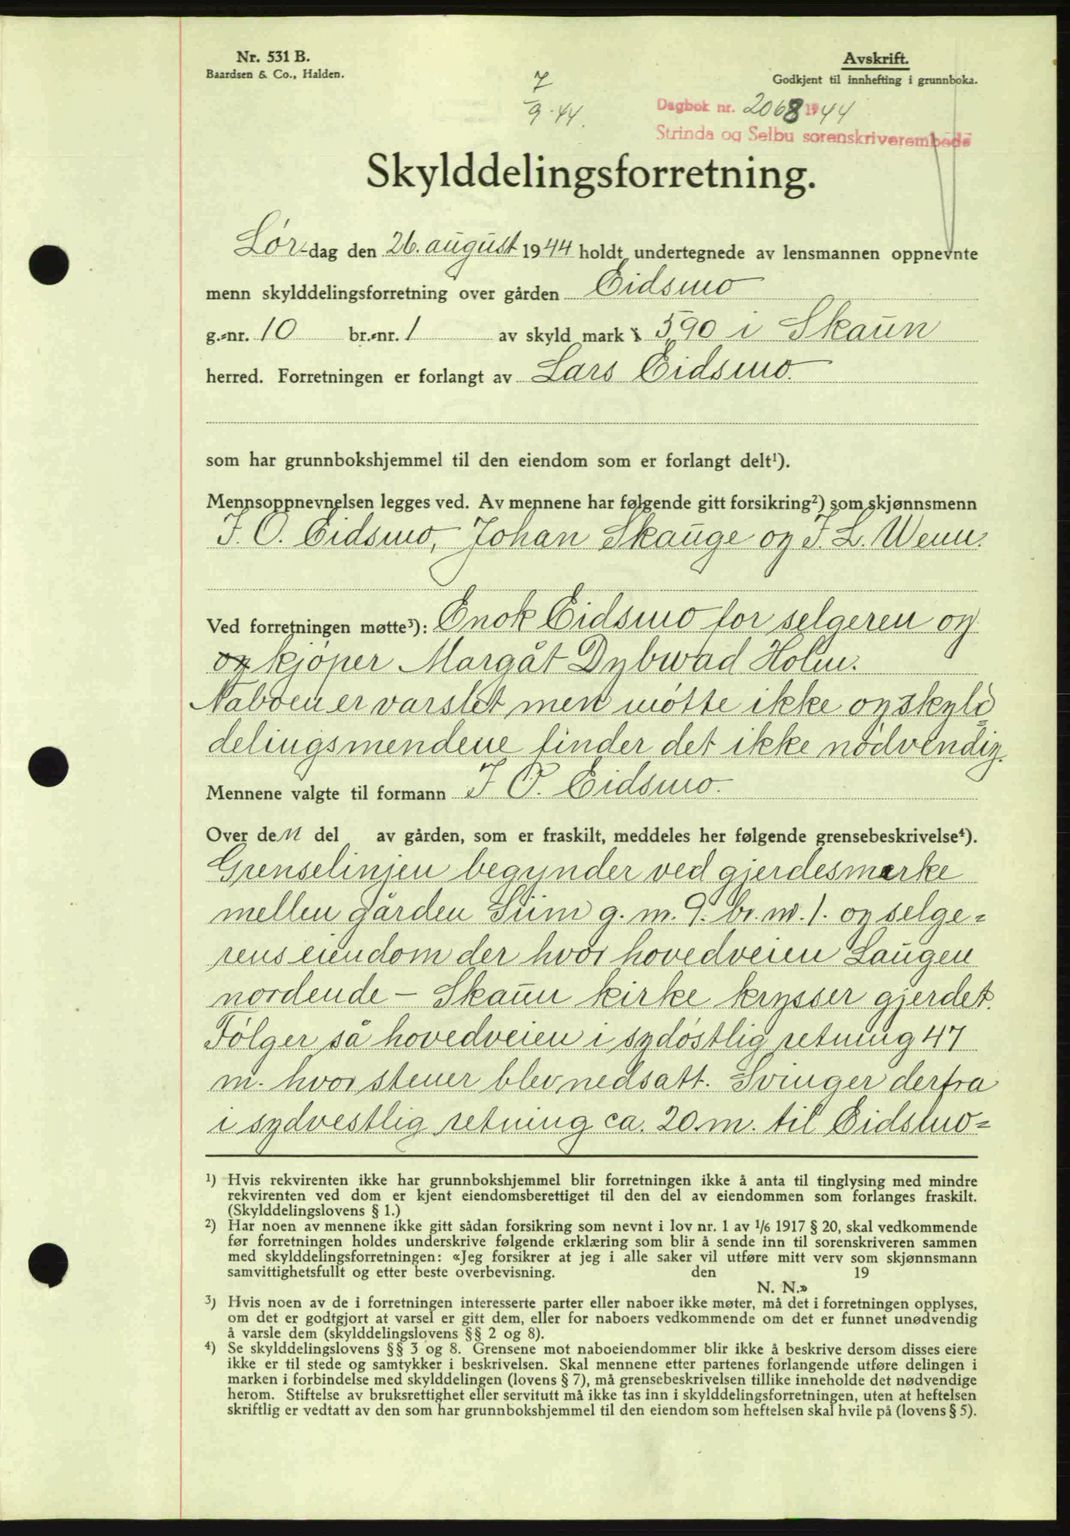 Nr. 531 B.
Baardsen & Co., Halden.
Avskrift.
Godkjent til innhefting i grunnboka.
7
/9-44.
Dagbok nr. 2068 1944
Strinda og Selbu sorenskriverembede
Skylddelingsforretning.
Lør-dag den 26. august 1944 holdt undertegnede av lensmannen oppnevnte
menn skylddelingsforretning over gården Eidsmo
g.-nr. 10 br.-nr. 1 av skyld mark 5,90 i Skaun
herred. Forretningen er forlangt av Lars Eidsmo.
som har grunnbokshjemmel til den eiendom som er forlangt delt¹).
Mennsoppnevnelsen legges ved. Av mennene har følgende gitt forsikring²) som skjønnsmenn
J. O. Eidsmo, Johan Skauge og J. L. Wenn.
Ved forretningen møtte³): Enok Eidsmo for selgeren og
og kjøper Margåt Dybwad Holm.
Naboen er varslet men møtte ikke og skyld=
delingsmendene finder det ikke nødvendig.
Mennene valgte til formann J O. Eidsmo.
Over den del av gården, som er fraskilt, meddeles her følgende grensebeskrivelse⁴).
Grenselinjen begynder ved gjerdesmerke
mellem gården Siim g. nr. 9. br. nr. 1. og selge=
rens eiendom der hvor hovedveien Laugen
nordende - Skaun kirke krysser gjerdet.
Følger så hovedveien i sydøstlig retning 47
m. hvor stener blev nedsatt. Svinger derfra
i sydvestlig retning ca. 20 m. til Eidsmo=
¹) Hvis rekvirenten ikke har grunnbokshjemmel blir forretningen ikke å anta til tinglysing med mindre
rekvirenten ved dom er kjent eiendomsberettiget til den del av eiendommen som forlanges fraskilt.
(Skylddelingslovens § 1.)
²) Har noen av mennene ikke gitt sådan forsikring som nevnt i lov nr. 1 av 1/6 1917 § 20, skal vedkommende
før forretningen holdes underskrive følgende erklæring som blir å sende inn til sorenskriveren sammen
med skylddelingsforretningen: «Jeg forsikrer at jeg i alle saker vil utføre mitt verv som skjønnsmann
samvittighetsfullt og etter beste overbevisning. den 19
N. N.»
³) Hvis noen av de i forretningen interesserte parter eller naboer ikke møter, må det i forretningen opplyses,
om det er godtgjort at varsel er gitt dem, eller for naboers vedkommende om det er funnet unødvendig
å varsle dem (skylddelingslovens §§ 2 og 8).
⁴) Se skylddelingslovens §§ 3 og 8. Grensene mot naboeiendommer blir ikke å beskrive dersom disses eiere
ikke er til stede og samtykker i beskrivelsen. Skal mennene etter partenes forlangende utføre delingen i
marken i forbindelse med skylddelingen (lovens § 7), må grensebeskrivelsen tillike inneholde det nødvendige
herom. Stiftelse av bruksrettighet eller servitutt må ikke tas inn i skylddelingsforretningen, uten at heftelsen
skriftlig er vedtatt av den som har grunnbokshjemmel til den eiendom som heftelsen skal hvile på (lovens § 5).